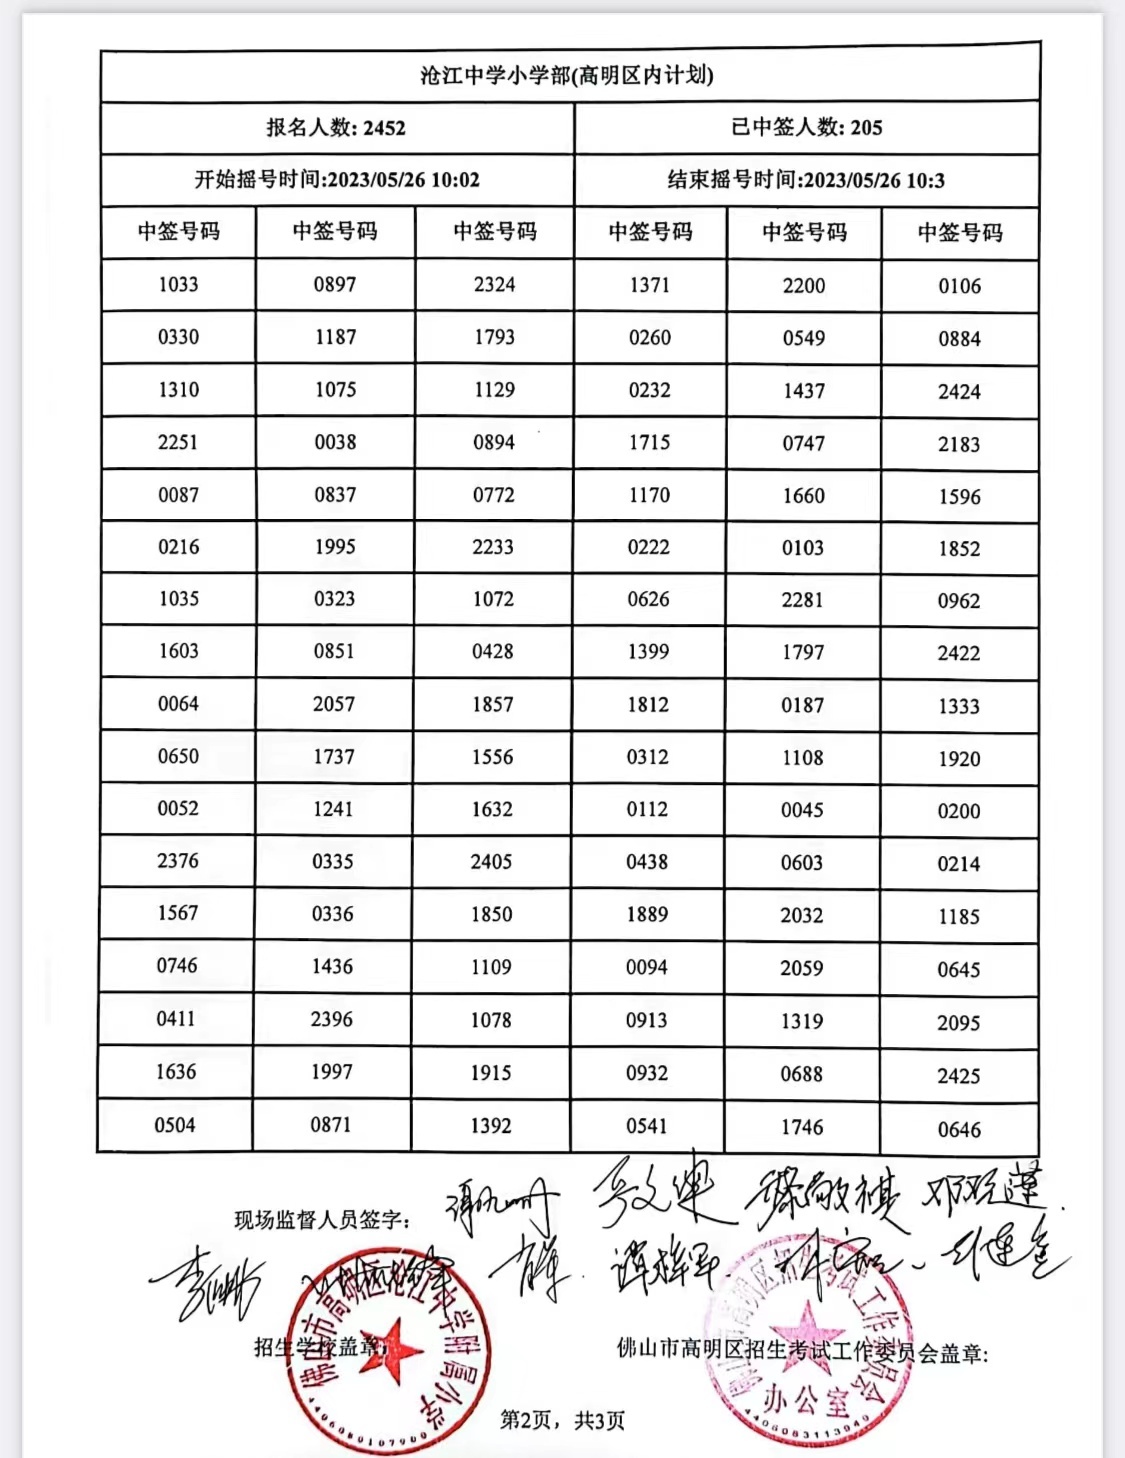 沧江中学小学部(高明区内计划)
报名人数: 2452 已中签人数: 205
开始摇号时间:2023/05/26 10:02 结束摇号时间:2023/05/26 10:3
中签号码 中签号码 中签号码 中签号码 中签号码 中签号码
1033 0897 2324 1371 2200 0106
0330 1187 1793 0260 0549 0884
1310 1075 1129 0232 1437 2424
2251 0038 0894 1715 0747 2183
0087 0837 0772 1170 1660 1596
0216 1995 2233 0222 0103 1852
1035 0323 1072 0626 2281 0962
1603 0851 0428 1399 1797 2422
0064 2057 1857 1812 0187 1333
0650 1737 1556 0312 1108 1920
0052 1241 1632 0112 0045 0200
2376 0335 2405 0438 0603 0214
1567 0336 1850 1889 2032 1185
0746 1436 1109 0094 2059 0645
0411 2396 1078 0913 1319 2095
1636 1997 1915 0932 0688 2425
0504 0871 1392 0541 1746 0646
现场监督人员签字:
招生学校盖章: 佛山市高明区招生考试工作委员会盖章:
佛山市高明区沧江中学附属小学
4406080107900
佛山市高明区招生考试工作委员会
办公室
4406083113940
第2页，共3页